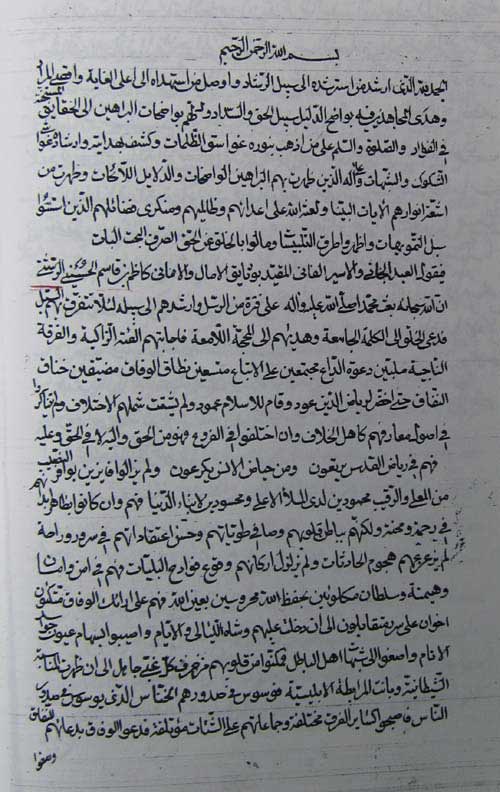 بسم الله الرحمن الرحيم
الحمد لله الذى ارشد من استرشده الى سبيل الرشاد و اوصل من استهداه الى اعلى الغاية و اقصى المراد
وهدى المجاهدين فيه بواضح الدليل سبيل الحق والسداد و بواضحات البراهين الى الحقايق
فى والصلوة والسلم على من اذهب بنوره غواسق الظلمات وكشف بهدايته وارشاده غواشى
الشكوك والشبهات وآله الذين ظهرت بهم البراهين الواضحات والدلايل اللائحات وظهرت من
اشعة انوارهم الايات البينات ولعنة الله على اعدائهم وظالميهم ومنكرى فضائلهم الذين استنوا
سبل التمويهات و اظهروا طرق التلبيسات ومالوا بالخلق عن الحق الصرف البحت البات
فيقول العبد الجانى والاسير الفانى المقيد بوثايق الامال والامانى كاظم بن قاسم الحسينى الرشتى
ان الله سبحانه بعث محمدا صلى الله عليه وآله على فترة من الرسل وارشدهم الى سبيله لئلا تتفرق بهم السبل
فدعى الخلق الى الكلمة الجامعة وهديهم الى المحجة اللامعة فاجابتهم الفئة الزاكية والفرقة
الناجية ملبين دعوة الداع مجتمعين على الاتباع متسعين نطاق الوفاق مضيقين خناق
النفاق حتى اخضر لرياض الدين عود وقام للاسلام عمود ولم يشتت شملهم الاختلاف ولم
فى اصول معارفهم كاهل الخلاف وان اختلفوا فى الفروع فهو من الحق واليه لا فى الحق وعليه
فهم فى رياض القدس يرتعون ومن حياض الانس يكرعون ولم يزالوا فايزين بوافر النصيب
من المعلى والرقيب محمودين لدى الملأ الاعلى ومحسودين لابناء الدنيا فهم وان كانوا بظاهر
فى زحمة ومحنة ولكنهم بباطن قلوبهم وصافى طوياتهم وحسن اعتقاداتهم فى سرور وراحة
لم يزعزعهم هجوم الحادثات ولم يزلزل اركانهم وقوع فوادح البليات فهم فى امن وامان
وهيمنة وسلطان مكلوئين بحفظ الله محروسين بعين الله فهم على ارائك الوفاق متكئون
اخوان على سرر متقابلون الى ان دخلت عليهم وشاة الليالى والايام و اصيبوا بسهام عيون
الانام واصغوا الى شبهات اهل الباطل فمكنوا من قلوبهم الى ان ظهرت المناسبة
الشيطانية وبانت المرابطة الابليسية فوسوس فى صدورهم الخناس الذى يوسوس فى صدور
الناس فاصبحوا كساير الفرق مختلفة وجماعاتهم على الشتات مؤتلفة فدعوا الوفاق